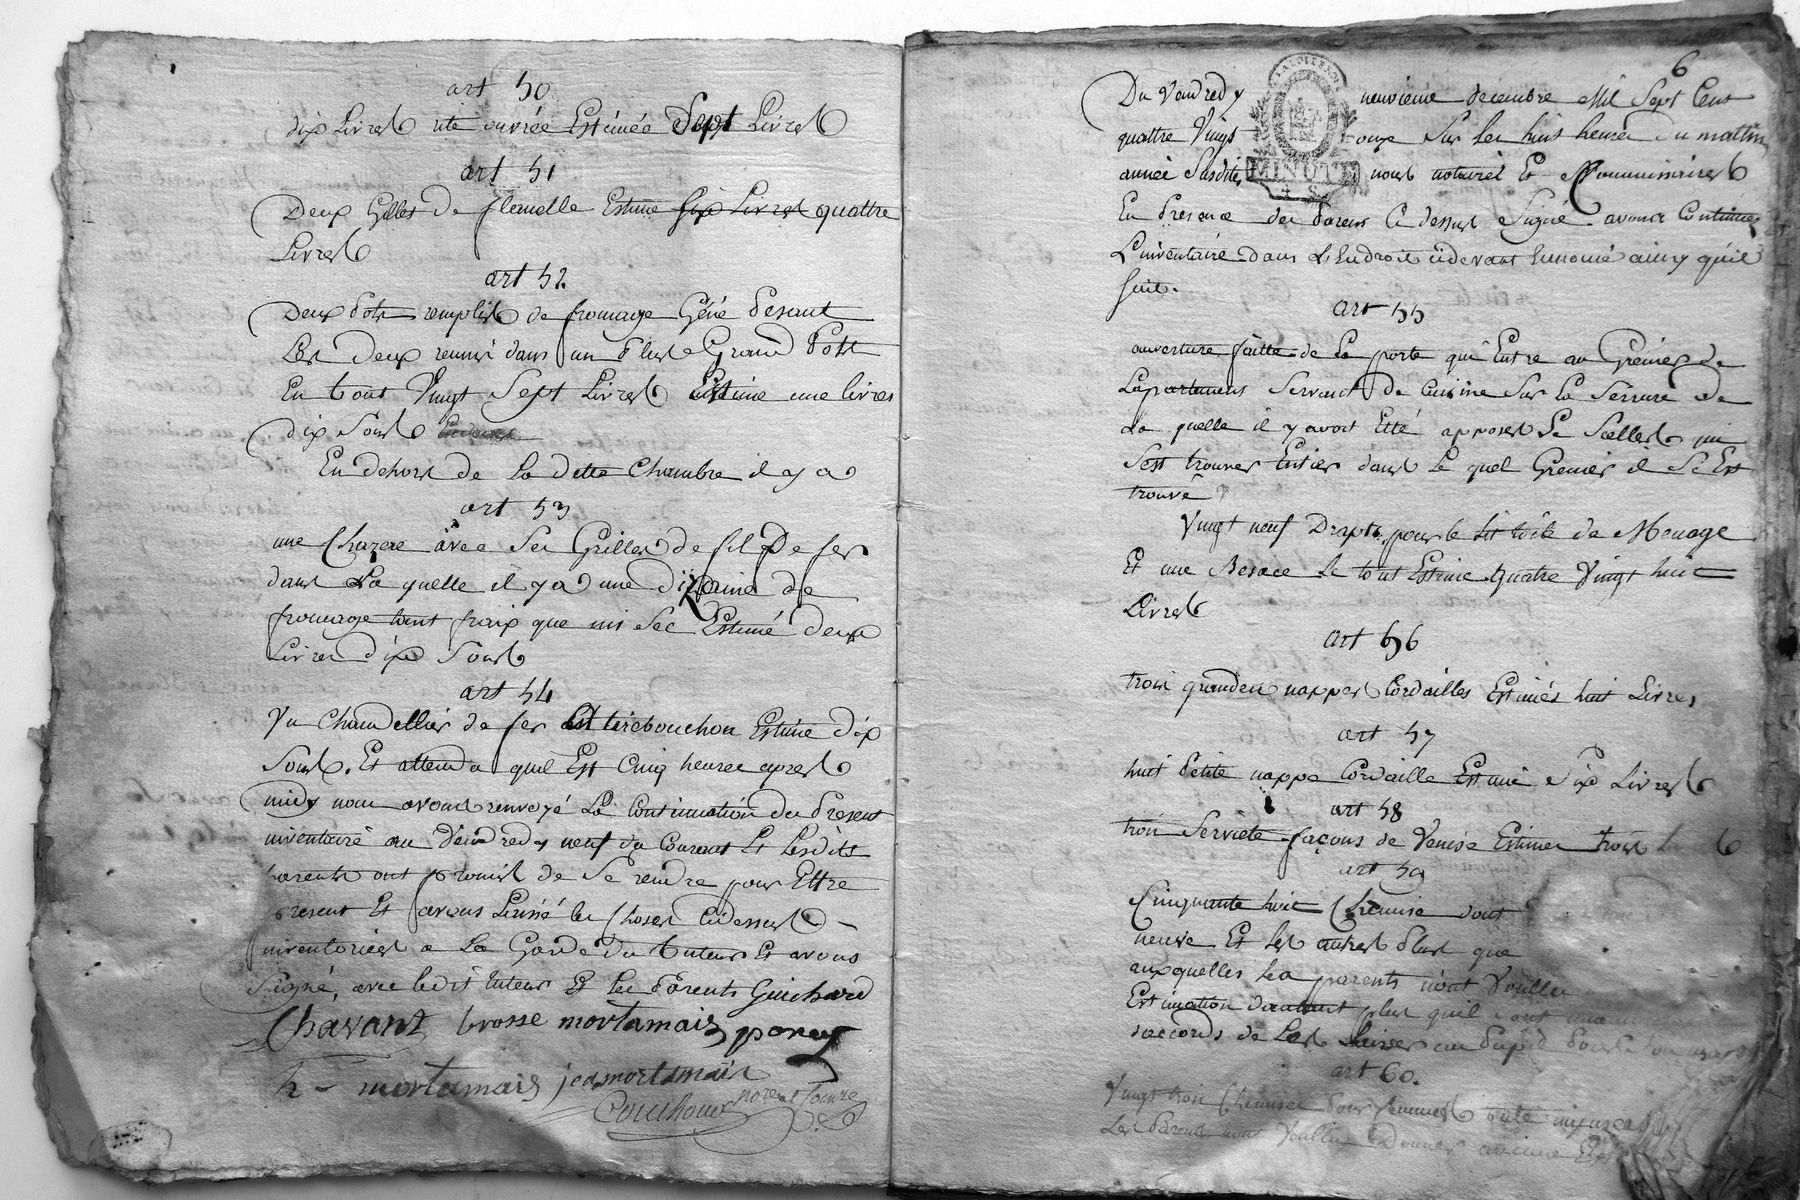 art 50
dix Livres rite ouvrée Estimée Sept Livres
art 51
Deux Gilles de flanelle Estime six Livres quattre
Livres
art 52
Deux pots remplis de fromage Géné pesant
Les deux reunis dans un plus Grand pott
En tout Vingt Sept Livres Estime une livres
dix Sous
En dehors de la ditte Chambre il y a
art 53
une Chazere avec Ses Grilles de fil de fer
dans La quelle il y a une dizaine de
fromage tant fraix que mi Sec Estimé deux
Livres dix Sous
art 54
Un Chandellier de fer Est tirebouchon Estime dix
Sous. Et attendu quil Est Cinq heures apres
midy nous avons renvoyé La Continuation du present
inventairé au Vendredy neuf du Courant Et Lesdits
parents ont promis de Se rendre pour Ettre
present Et avons Laissé les Choses Cidessus
inventories a La Garde du tuteur Et avons
Signé, avec ledit tuteur Et les parents Guichard
Chavant brosse mortamais poncy
h - mortamais jea mortamais
Couchoud
6
Du Vendredy neuvieme decembre Mil Sept Cent
quattre Vingt onze Sur les huit heures du mattin
année Susdite, nous notaires Et Commissaires
MINUTE
4 S
En presence des parens Cy dessus Signé avons Continués
L'inventaire dans L'Endroit cidevant Ennomé ainsy quéil
suit.
art 55
ouverture faitte de La porte qui Entre au Grenier de
Lapartement Servant de Cuisine Sur La Serrure de
La quelle il y avoit Etté apposes Le Scelles qui
Sest trouves Entier dans Le quel Grenier il Se Est
trouvé
Vingt neuf Draps pour le lit toile de Menage
Et une Besace Le tout Estime quatre Vingt huit
Livres
art 56
trois grandes nappes Cordailles Estimés huit Livres
art 57
huit petite nappe Cordaille Estimé Six Livres
art 58
trois Serviete façons de Venise Estimes trois
art 59
Cinquante huit Chemise dont
neuve Et les autres plus que
auxquelles les parents n'ont Voullu
Estimation dautant plus quil ont
daccords de Les Laisser au
art 60.
Vingt trois Chemises pour femmes
Les parens nont Voullu Donner aucune